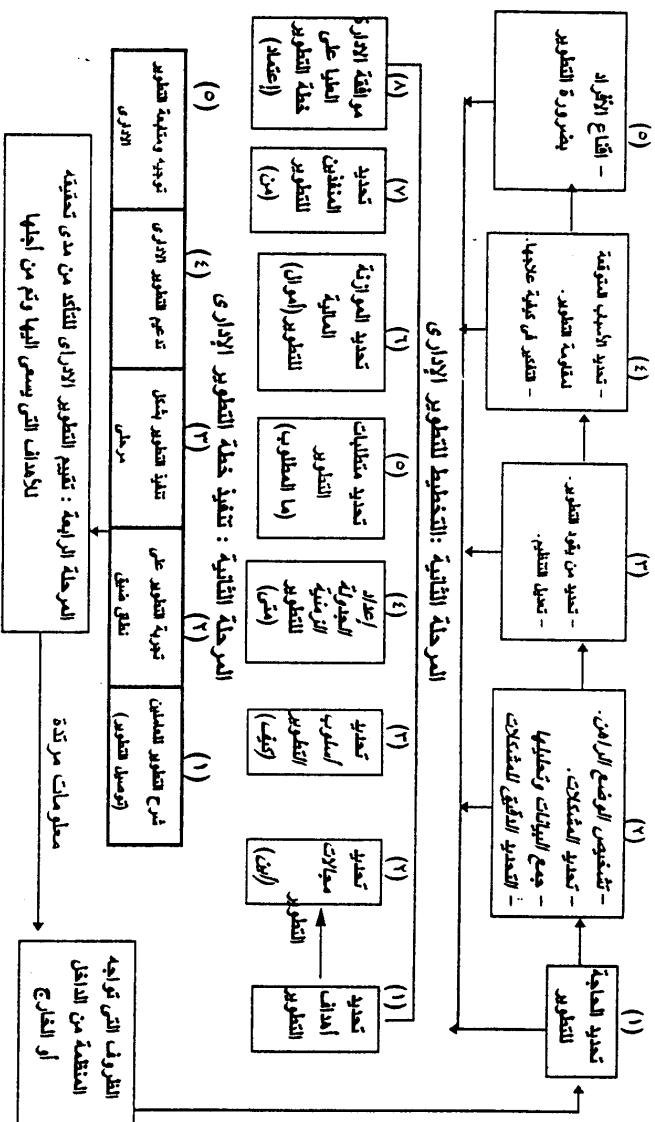 (١)
تحديد الحاجة
للتطوير
(٢)
- تشخيص الوضع الراهن.
- تحديد المشكلات.
- جمع البيانات وتحليلها
- التحديد الدقيق للمشكلات
(٣)
- تحديد من يقود التطوير.
- تعديل التنظيم.
(٤)
- تحديد الأسباب المتوقعة
لمقاومة التطوير.
- التفكير فى كيفية علاجها.
(٥)
- اقناع الأفراد
بضرورة التطوير
المرحلة الثانية :التخطيط للتطوير الإدارى
(١)
تحديد
أهداف
التطوير
(٢)
تحديد
مجالات
التطوير
(أين)
(٣)
تحديد
أسلوب
التطوير
(كيف)
(٤)
إعداد
الجدولة
الزمنية
للتطوير
(متى)
(٥)
تحديد متطلبات
التطوير
(ما المطلوب)
(٦)
تحديد الموازنة
المالية
للتطوير(أموال)
(٧)
تحديد
المنفذين
للتطوير
(من)
(٨)
موافقة الادارة
العليا على
خطة التطوير
(إعتماد)
المرحلة الثانية : تنفيذ خطة التطوير الإدارى
(١)
شرح التطوير للعاملين
(توصيل التطوير)
(٢)
تجربة التطوير على
نطاق ضيق
(٣)
تنفيذ التطوير بشكل
مرحلى
(٤)
تدعيم التطوير الادارى
(٥)
توجيه ومتابعة التطوير
الادارى
المرحلة الرابعة : تقييم التطوير الادراى للتأكد من مدى تحقيقه
للأهداف التى يسعى اليها وتم من أجلها
معلومات مرتدة
الظروف التى تواجه
المنظمة من الداخل
أو الخارج